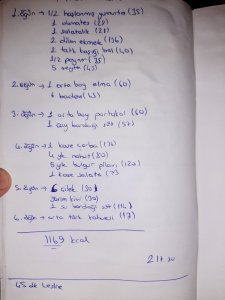 1. öğün → 1/2 haşlanmış yumurta (35)
1 domates (28)
1 salatalık (28)
2 dilim ekmek (136)
2 tatlı kaşığı bal (40)
1/2 peynir (35)
5 zeytin (45)
2. öğün → 1 orta boy elma (60)
6 badem (43)
3. öğün → 1 orta boy portakal (60)
1 çay bardağı süt (57)
4. öğün → 1 kase çorba (136)
4 yk nohut (80)
5 yk bulgur pilavı (120)
1 kase salata (73)
5. öğün → 6 çilek (30)
yarım kivi (30)
1 su bardağı süt (114)
6. öğün → orta türk kahvesi (17)
1169 kcal
2 lt su
45 dk